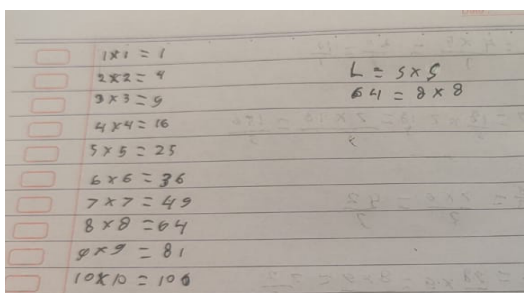 1×1 = 1
2×2 = 4
3×3 = 9
4×4 = 16
5×5 = 25
6×6 = 36
7×7 = 49
8×8 = 64
9×9 = 81
10×10 = 100
L = s×s
64 = 8×8